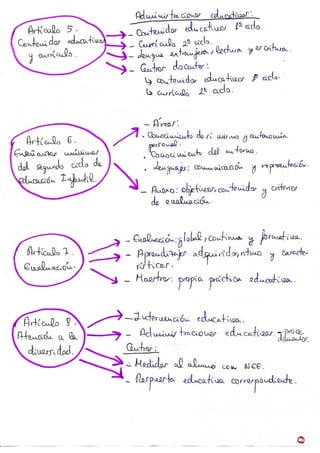 Administraciones educativas:
Artículo 5.
Contenidos educativos
y currículo.
- Contenidos educativos 1º ciclo.
- Currículo 2º ciclo.
- Lengua extranjera, lectura y escritura.
- Centros docentes:
↳ contenidos educativos 1º ciclo.
↳ currículo 2º ciclo.
Artículo 6.
Enseñanzas mínimas
del segundo ciclo de
Educación Infantil.
- Áreas:
· Conocimiento de sí mismo y autonomía
personal.
· Conocimiento del entorno.
· Lenguajes: comunicación y representación.
- Anexo: objetivos, contenidos y criterios
de evaluación.
Artículo 7.
Evaluación.
- Evaluación: global, continua y formativa.
- Aprendizajes adquiridos, ritmo y caracte-
rísticas.
- Maestros: propia práctica educativa.
Artículo 8.
Atención a la
diversidad.
- Intervención educativa.
- Administraciones educativas
Centros:
- Medidas al alumno con NEE.
- Respuesta educativa correspondiente.